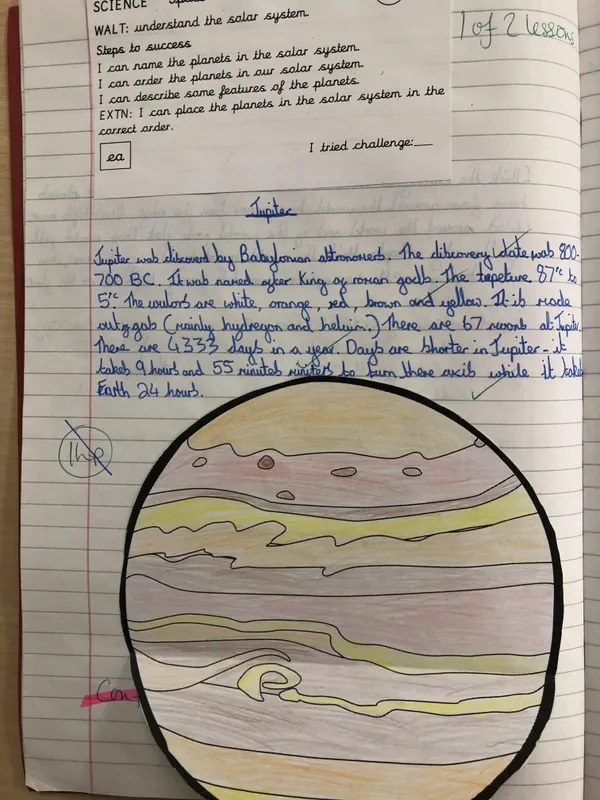 SCIENCE Space
WALT: understand the solar system.
Steps to success
I can name the planets in the solar system.
I can order the planets in our solar system.
I can describe some features of the planets.
EXTN: I can place the planets in the solar system in the
correct order.
ea
I tried challenge:__
1 of 2 lessons
Jupiter
Jupiter was discoved by Babylonian astronomers. The discovery date was 800-
700 BC. It was named after King of roman gods. The tempeture 87°c to
5°c The coulors are white, orange, red, brown and yellow. It is made
out of gas (mainly hydregon and helium.) There are 67 moons at Jupiter
There are 4333 days in a year. Days are shorter in Jupiter - it
takes 9 hours and 55 minutes to turn there axis while it takes
Earth 24 hours.
Con